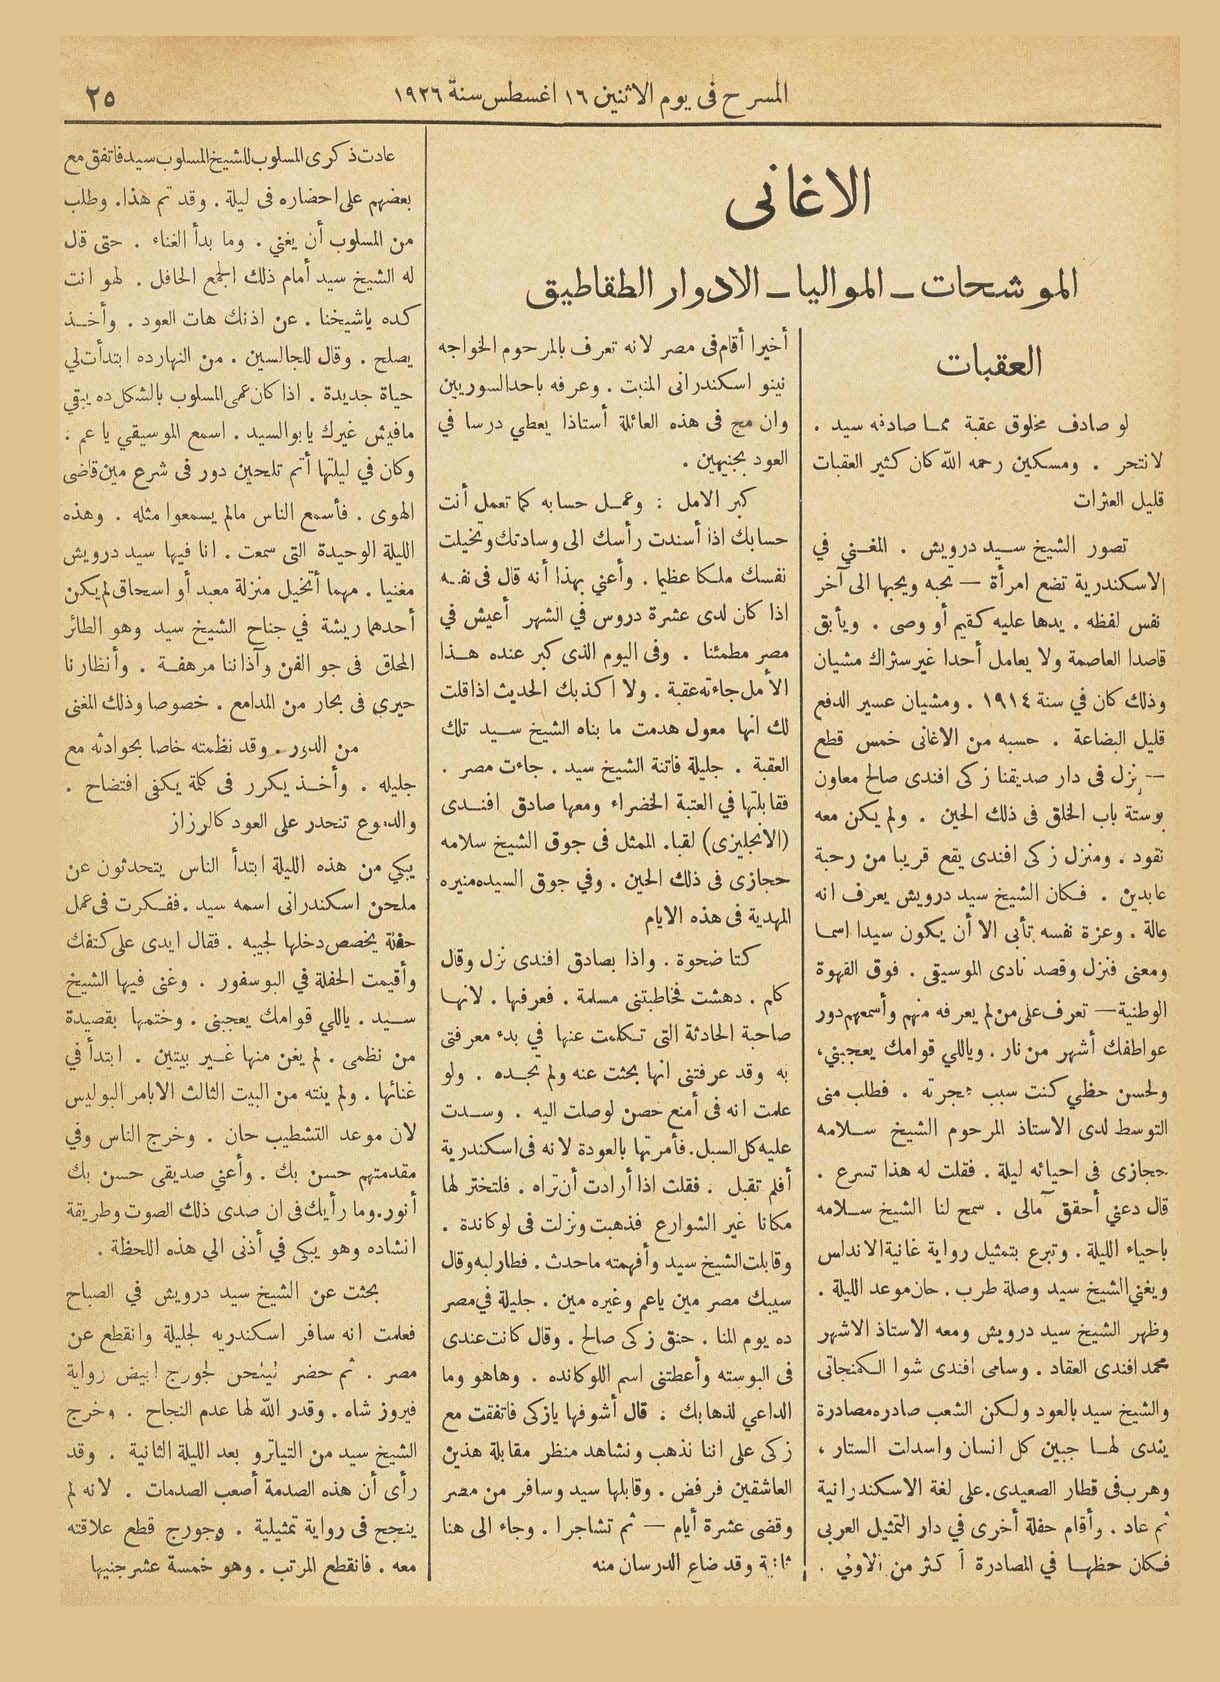 المسرح فى يوم الاثنين ١٦ اغسطس سنة ١٩٢٦
٢٥
الاغانى
الموشحات ــ المواليا ــ الادوار الطقاطيق
العقبات
لو صادف مخلوق عقبة ممـا صادفه سيد .
لانتحر . ومسكين رحمه الله كان كثير العقبات
قليل العثرات
تصور الشيخ سـيد درويش . المغـني في
الاسكندرية تضع امرأة — يحبه ويحبها الى آخر
نفس لفظه . يدها عليه كقيم أو وصى . ويأبق
قاصدا العاصمة ولا يعامل أحدا غير ستراك مشيان
وذلك كان في سنة ١٩١٤ . ومشيان عسير الدفع
قليل البضاعة . حسبه من الاغانى خمس قطع
— نزل فى دار صديقنا زكى افندى صالح معاون
بوستة باب الخلق فى ذلك الحين . ولم يكن معه
نقود . ومنزل زكى افندى يقع قريبا من رحبة
عابدين . فـكان الشيخ سيد درويش يعرف انه
عالة . وعزة نفسه تأبى الا أن يكون سيدا اسمـا
ومعنى فنزل وقصد نادى الموسيقى . فوق القهوة
الوطنية — تعرف على من لم يعرفه منهم وأسمعهم دور
عواطفك أشهر من نار . وياللي قوامك يعجبني،
ولحسن حظي كنت سبب شهرته . فطلب منى
التوسط لدى الاستاذ المرحوم الشيخ سـلامه
حجازى فى احيائه ليلة . فقلت له هذا تسرع .
قال دعني أحقق آمالى . سمح لنا الشيخ سـلامه
باحياء الليلة . وتبرع بتمثيل رواية غانية الاندلس
ويغني الشيخ سيد وصلة طرب . حان موعد الليلة .
وظهر الشيخ سيد درويش ومعه الاستاذ الاشهر
محمد افندى العقاد . وسامى افندى شوا الـكمنجاتى
والشيخ سيد بالعود ولـكن الشعب صادره مصادرة
يندى لهـا جبين كل انسان واسدلت الستار ،
وهرب فى قطار الصعيدى. على لغة الاسكندرانية
ثم عاد . وأقام حفلة أخرى في دار التمثيل العربى
فـكان حظهـا في المصادرة أكثر من الاولى .
أخيرا أقام فى مصر لانه تعرف بالمرحوم الخواجه
نينو اسكندرانى المنبت . وعرفه باحد السوريين
وان مج فى هذه العائلة أستاذا يعطي درسا في
العود بجنيهين .
كبر الامل : وعمـل حسابه كما تعمل أنت
حسابك اذا أسندت رأسك الى وسادتك وتخيلت
نفسك ملـكا عظيما . وأعني بهذا أنه قال فى نفسه
اذا كان لدى عشرة دروس في الشهر أعيش في
مصر مطمئنا . وفى اليوم الذى كبر عنده هـذا
الأمل جاءته عقبة . ولا اكذبك الحديث اذا قلت
لك انها معول هدمت ما بناه الشيخ سـيد تلك
العقبة . جليلة فاتنة الشيخ سيد . جاءت مصر .
فقابلتها في العتبة الخضراء ومعها صادق افنـدى
(الانجليزى) لقبا. الممثل فى جوق الشيخ سلامه
حجازى فى ذلك الحين . وفي جوق السيده منيره
المهدية فى هذه الايام
كنا ضحوة . واذا بصادق افندى نزل وقال
كلم . دهشت فخاطبتنى مسلمة . فعرفها . لانهـا
صاحبة الحادثة التى تـكلمت عنها في بدء معرفتى
به وقد عرفتنى انها بحثت عنه ولم تجـده . ولو
علمت انه فى أمنع حصن لوصلت اليه . وسـدت
عليه كل السبل. فأمرتها بالعودة لانه فى اسكندرية
أفلم تقبل . فقلت اذا أرادت أن تراه . فلتختر لها
مكانا غير الشوارع فذهبت ونزلت فى لوكاندة .
وقابلت الشيخ سيد وأفهمته ماحدث . فطار لبه وقال
سيبك مصر مين ياعم وغيره مين . جليلة في مصر
ده يوم المنا . حنق زكى صالح . وقال كانت عندى
فى البوسته وأعطتنى اسم اللوكانده . وهاهو وما
الداعي لذهابك . قال أشوفها يازكى فاتفقت مع
زكى على اننا نذهب ونشاهد منظر مقابلة هذين
العاشقين فرفض . وقابلها سيد وسافر من مصر
وقضى عشرة أيام — ثم تشاجرا . وجاء الى هنا
ثانية وقد ضاع الدرسان منه
عادت ذكرى المسلوب للشيخ المسلوب سيد فاتفق مع
بعضهم على احضاره فى ليلة . وقد تم هذا. وطلب
من المسلوب أن يغني . وما بدأ الغناء . حتى قال
له الشيخ سيد أمام ذلك الجمع الحافل . لهو انت
كده ياشيخنا . عن اذنك هات العود . وأخـذ
يصلح . وقال للجالسين . من النهارده ابتدأت لي
حياة جديدة . اذا كان عمى المسلوب بالشكل ده يبقي
مافيش غيرك يابو السيد . اسمع الموسيقي ياعم .
وكان في ليلتها أتم تلحين دور فى شرع مين قاضى
الهوى . فأسمع الناس مالم يسمعوا مثله . وهذه
الليلة الوحيدة التى سمعت . انا فيها سيد درويش
مغنيا . مهما أتخيل منزلة معبد أو اسحاق لم يكن
أحدهما ريشة في جناح الشيخ سيد وهو الطائر
المحلق فى جو الفن وآذاننا مرهفـة . وأنظارنا
حيرى فى بحار من المدامع . خصوصا وذلك المغنى
من الدور . وقد نظمته خاصا بحوادثه مع
جليله . وأخـذ يكرر فى كلمة يكفى افتضاح .
والدموع تنحدر على العود كالرزاز
يبكي من هذه الليلة ابتدأ الناس يتحدثون عن
ملحن اسكندرانى اسمه سيد . ففـكرت فى عمل
حفلة يخصص دخلها لجيبه . فقال ايدى على كتفك
وأقيمت الحفلة في البوسفور . وغنى فيها الشيخ
سـيد . ياللي قوامك يعجبنى . وختمها بقصيدة
من نظمى . لم يغن منها غـير بيتين . ابتدأ في
غنائها . ولم ينته من البيت الثالث الا بامر البوليس
لان موعد التشطيب حان . وخرج الناس وفي
مقدمتهم حسن بك . وأعني صديقى حسن بك
أنور. وما رأيك فى ان صدى ذلك الصوت وطريقة
انشاده وهو يبكي في أذنى الي هذه اللحظة .
بحثت عن الشيخ سيد درويش في الصباح
فعلمت انه سافر اسكندريه لجليلة وانقطع عن
مصر . ثم حضر ليلحن لجورج ابيض رواية
فيروز شاه . وقدر الله لها عدم النجاح . وخرج
الشيخ سيد من التياترو بعد الليلة الثانية . وقد
رأى أن هذه الصدمة أصعب الصدمات . لانه لم
ينجح فى رواية تمثيلية . وجورج قطع علاقته
معه . فانقطع المرتب . وهو خمسة عشر جنيها